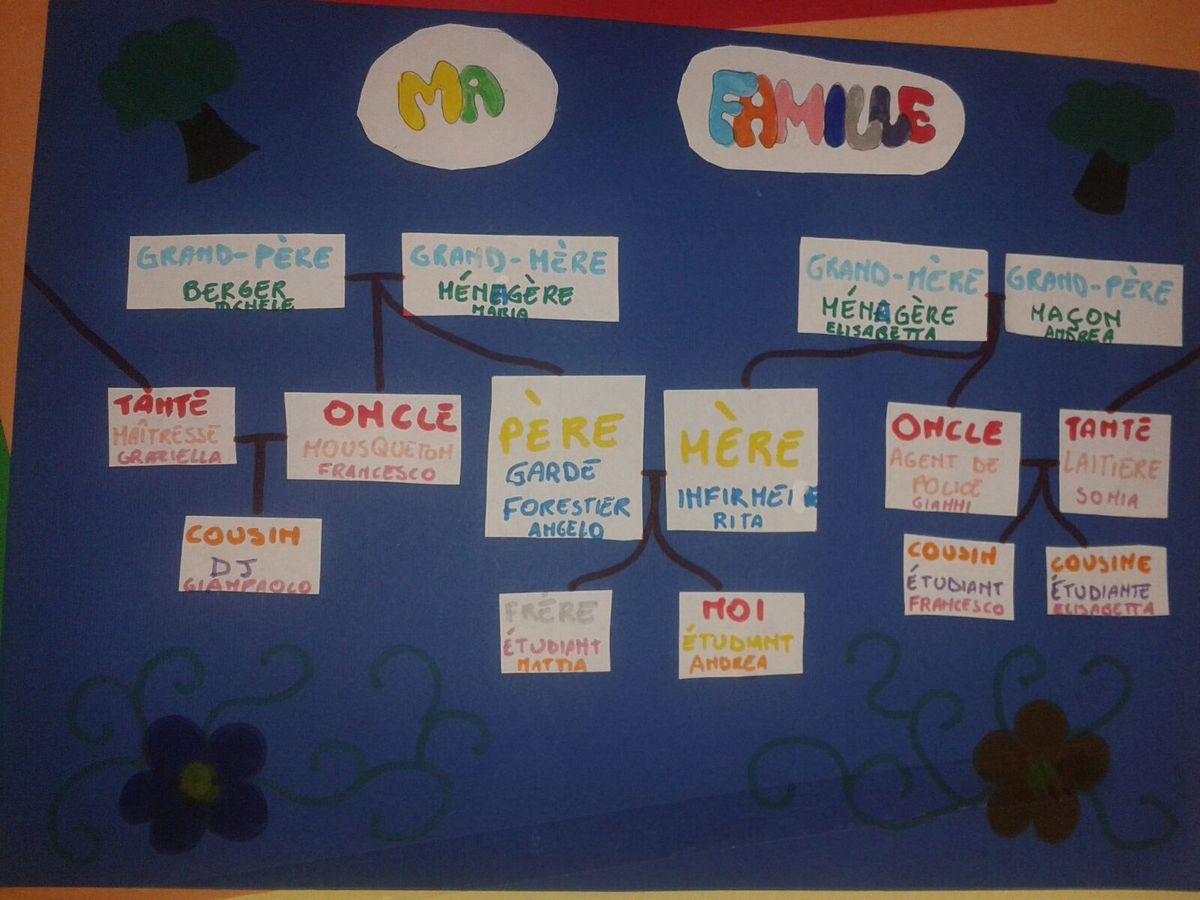 MA FAMILLE
GRAND-PÈRE
BERGER
MICHELE
GRAND-MÈRE
MÉNAGÈRE
MARIA
GRAND-MÈRE
MÉNAGÈRE
ELISABETTA
GRAND-PÈRE
MAÇON
ANDREA
TANTE
MAÎTRESSE
GRAZIELLA
ONCLE
MOUSQUETON
FRANCESCO
PÈRE
GARDE
FORESTIER
ANGELO
MÈRE
RITA
ONCLE
AGENT DE
POLICE
GIANNI
TANTE
LAITIERE
SONIA
COUSIN
DJ
GIANPAOLO
FRÈRE
ÉTUDIANT
MATTIA
MOI
ÉTUDIANT
ANDREA
COUSIN
ÉTUDIANT
FRANCESCO
COUSINE
ÉTUDIANTE
ELISABETTA